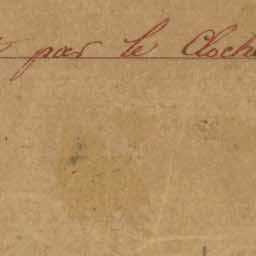 par le Cloche